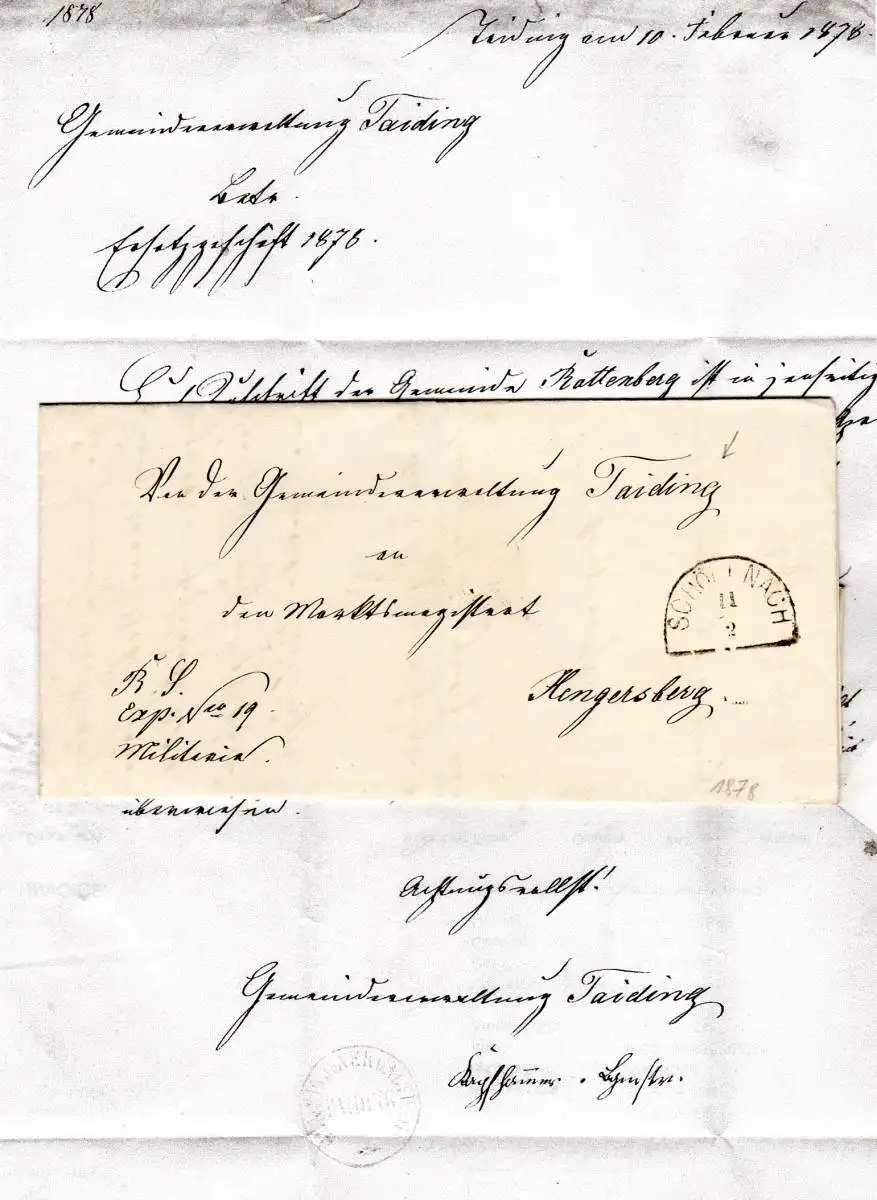 1878
Taiding am 10. Februar 1878.
Gemeindeverwaltung Taiding
Betr.
Ersatzgeschäft 1878.
Zuschrift der Gemeinde Rottenberg ist in jenseitig
Von der Gemeindeverwaltung Taiding
an
den Marktsmagistrat
Hengersberg
SCHÖLLNACH
11
2
R. S.
Exp. Nro 19.
Militaria.
1878
überwiesen.
Achtungsvollst!
Gemeindeverwaltung Taiding
Bgmstr.